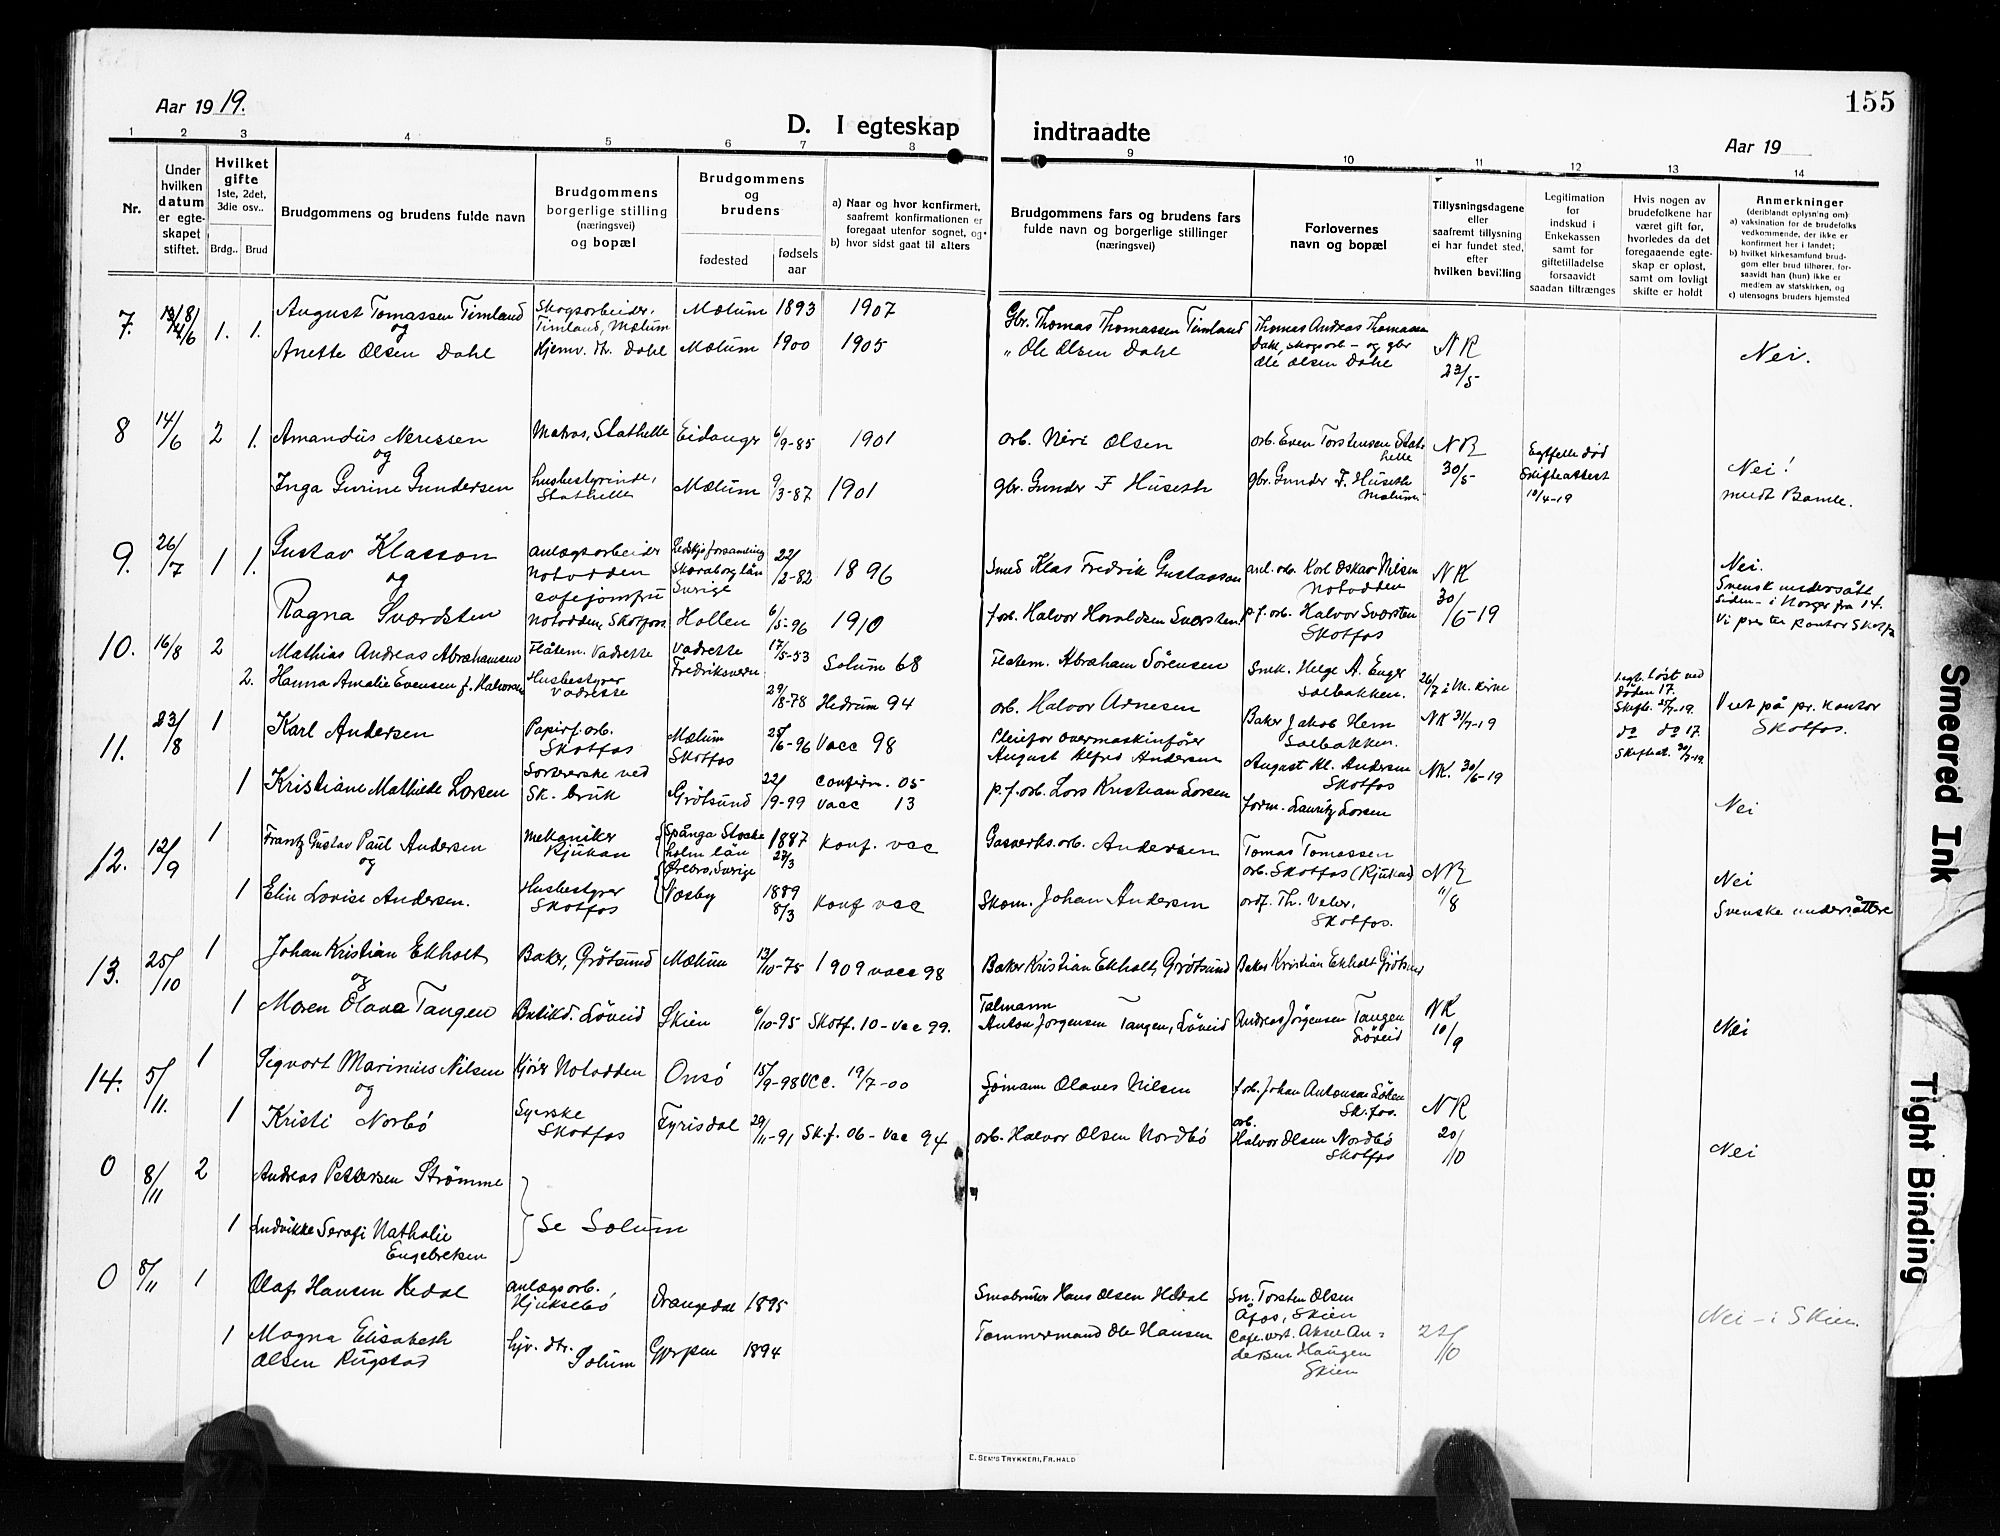 155
Aar 1919.
D. I egteskap indtraadte
Aar 19
1 2 3 4 5 6 7 8 9 10 11 12 13 14
Nr.
Under hvilken datum er egteskapet stiftet.
Hvilket gifte
1ste, 2det, 3die osv..
Brdg.. Brud
Brudgommens og brudens fulde navn
Brudgommens borgerlige stilling (næringsvei) og bopæl
Brudgommens og brudens
fødested
fødselsaar
a) Naar og hvor konfirmert, saafremt konfirmationen er foregaat utenfor sognet, og
b) hvor sidst gaat til alters
Brudgommens fars og brudens fars fulde navn og borgerlige stillinger (næringsvei)
Forlovernes navn og bopæl
Tillysningsdagene eller saafremt tillysning ei har fundet sted, efter hvilken bevilling
Legitimation for indskud i Enkekassen samt for giftetilladelse forsaavidt saadan tiltrænges
Hvis nogen av brudefolkene har været gift før, hvorledes da det foregaaende egteskap er opløst, samt om lovligt skifte er holdt
Anmerkninger
(deriblandt oplysning om)
a) vaksination for de brudefolks vedkommende, der ikke er konfirmert her i landet;
b) hvilket kirkesamfund brudgom eller brud tilhører, forsaavidt han (hun) ikke er medlem av statskirken, og
c) utensogns bruders hjemsted
7. 1. 1.
August Tomassen Timland Skogsarbeider, Timland, Mælum Mælum 1893 1907 Gbr. Thomas Thomassen Timland Thomas Andreas Thomassen Dahl, skogsarb – og gbr Ole Olsen Dahl NK 23/5
og
Anette Olsen Dahl Hjemv. dtr. Dahl Mælum 1900 1905 " Ole Olsen Dahl Nei.
8 14/6 2 1.
Amandus Nerissen Matros, Stathelle Eidanger 6/9-85 1901 arb. Neri Olsen arb. Even Torstensen Stathelle NK 30/5 Egtfelle død Skifteattest 10/4-19
og
Inga Gurine Gundersen husbestyrinde, Stathelle Mælum 9/3-87 1901 gbr. Gunder F. Huseth gbr. Gunder F. Huseth Mælum Nei! meldt Bamle.
9. 26/7 1 1.
Gustav Klasson anlægsarbeider Notodden Skaraborg län Sverige 22/2-82 1896 Smed Klas Fredrik Gustavson anl. arb. Karl Oskar Nilsen Notodden NK 30/6-19 Nei. Svensk undersått
og
Ragna Sværdsten cafejomfru Notodden, Skotfos Hollen 6/5-96 1910 f. arb. Halvor Haraldsen Sværsten p.f. arb. Halvor Sværsten Skotfos
10. 16/8 2
Mathias Andreas Abrahamsen Flåtem. Vadrette Vadrette 17/5-53 Solum 68 Flatem. Abraham Sørensen Smk. Helge A. Enger Solbakken. 26/7 i M. kirke
2.
Hanna Amalie Evensen f. Halvorsen Husbestyrer Vadrette Fredriksvern 29/8-78 Hedrum 94 arb. Halvor Arnesen Baker Jakob Hem Solbakken. NK 31/7-19 Egt. løst ved døden 17. do do 17. Viet på pr. kontor Skotfos.
11. 23/8 1
Karl Andersen Papirf. arb. Skotfos Mælum Skotfos 25/6-96 Vacc 98 overmaskinfører August Alfred Andersen August Kl. Andersen Skotfos NK. 30/6-19
1
Kristiane Mathilde Larsen Sorterske ved Sk. bruk Grötsund 22/9-99 Confirm. 05 vacc 13 p.f. arb. Lars Kristian Larsen Form. Lauritz Larsen Nei
12. 12/9 1
Frantz Gustav Paul Andersen mekaniker Rjukan Spånga Stockholm län 1887 27/3 Konf. vac Gasverks. arb. Andersen Tomas Tomassen arb. Skotfos (Rjukan) NK 11/8 Nei
og
1
Elin Lovise Andersen. Husbestyrer Skotfos Örebro, Sverige Næsby 1889 8/3 Konf vac Skom. Johan Andersen ordf. Th. Veber, Skotfos. Svenske undersåtter
13. 25/10 1
Johan Kristian Ekholt Baker, Grötsund Mælum 13/10-75 1909 vacc 98 Baker Kristian Ekholt, Grötsund Baker Kristian Ekholt Grötsund
og
1
Maren Olava Tangen Butikd. Löveid Skien 6/10-95 Skotf. 10 – vac 99. Talmann Anton Jørgensen Tangen, Löveid Andreas Jörgensen Tangen Löveid NK 10/9 Nei
14. 5/11. 1
Sigvart Marinius Nilsen Kjører Notodden Onsö 15/9-98 vcc. 19/7-00 Sjömann Olaves Nilsen f. arb. Johan Antonsen Sk. fos. NK 20/10
og
1
Kristi Norbö Syerske Skotfos Fyrisdal 29/11-91 Sk.f. 06 – Vac 94 arb. Halvor Olsen Nordbö arb. Halvor Olsen Nordbö Skotfos Nei
0 8/11 2
Andreas Pettersen Strömme
1
Ludvikke Serafi Nathalie Engebretsen
Se Solum
0 8/11 1
Olaf Hansen Hedal anlægsarb. Hjuksebö Drangedal 1895 Småbruker Hans Olsen Hedal Sn. Torsten Olsen Åfos, Skien
1
Magna Elisabeth Olsen Rugstad hjv. dtr. Solum Gjerpen 1894 Tømmermand Ole Hansen Cafevert. Aksel Andersen Haugen Skien 22/10 Nei – i Skien.
E. Sem's Trykkeri, Fr.hald
Smeared Ink
Tight Binding